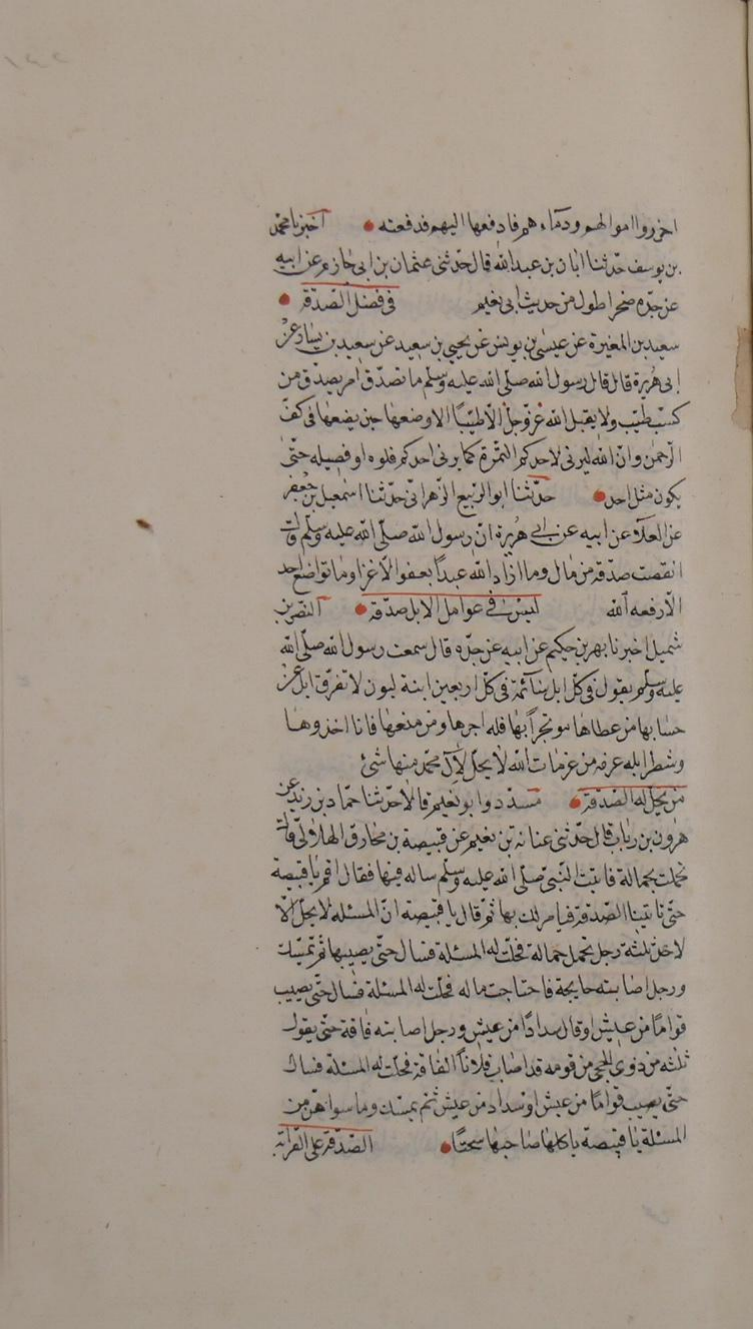 احرزوا اموالهم ودماءهم فادفعها اليهم فدفعته • اخبرنا محمد
بن يوسف حدثنا ابان بن عبدالله قال حدثنى عثمان بن ابى حازم عن ابيه
عن جده صخر اطول من حديث ابى نعيم فى فضل الصدقة •
سعيد بن المغيرة عن عيسى بن يونس عن يحيى بن سعيد عن سعيد بن يسار عن
ابى هريرة قال قال رسول الله صلى الله عليه وسلم ما تصدق امر بصدق من
كسب طيب ولا يقبل الله عز وجل الا طيبا الا وضعها حين يضعها فى كف
الرحمن وان الله ليربى لاحدكم التمرة كما يربى احدكم فلوه او فصيله حتى
يكون مثل احد • حدثنا ابو الربيع الزهرانى حدثنا اسمعيل بن جعفر
عن العلاء عن ابيه عن ابى هريرة ان رسول الله صلى الله عليه وسلم قال
انقصت صدقة من مال وما ازاد الله عبدا بعفو الا عزا وما تواضع احد
الا رفعه الله ليس فى عوامل الابل صدقة • النضر بن
شميل اخبرنا بهز بن حكيم عن ابيه عن جده قال سمعت رسول الله صلى الله
عليه وسلم يقول فى كل ابل سائمة فى كل اربعين ابنة لبون لا تفرق ابل عن
حسابها من عطاها موتجرا بها فله اجرها ومن منعها فانا اخذوها
وشطر ابله عزمة من عزمات الله لا يحل لآل محمد منها شئ
من يحل له الصدقة • مسدد وابو نعيم قالا حدثنا حماد بن زيد عن
هرون بن رياب قال حدثنى كنانة بن نعيم عن قبيصة بن مخارق الهلالى قال
تحملت بحمالة فاتيت النبى صلى الله عليه وسلم ساله فيها فقال اقم يا قبيصة
حتى تاتينا الصدقة فنامر لك بها ثم قال يا قبيصة ان المسئلة لا يحل الا
لاحد ثلثة رجل تحمل حمالة فحلت له المسئلة فسال حتى يصيبها ثم يمسك
ورجل اصابته جايحة فاحتاجت ماله فحلت له المسئلة فسال حتى يصيب
قواما من عيش او قال سدادا من عيش ورجل اصابته فاقة حتى يقول
ثلثه من ذوى الحجى من قومه قد اصاب فلانا الفاقة فحلت له المسئلة فسال
حتى يصيب قواما من عيش او سداد من عيش ثم يمسك وما سواهن من
المسئلة يا قبيصة ياكلها صاحبها سحتا • الصدقة على القرابة